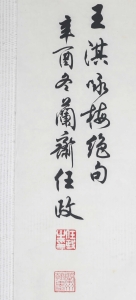 王淇咏梅绝句
辛酉冬蘭齋任政